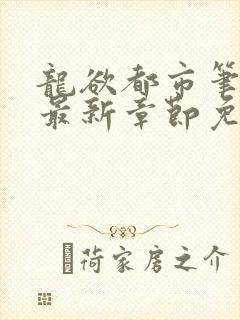 龍欲都市筆
最新章節免
荷家房之介